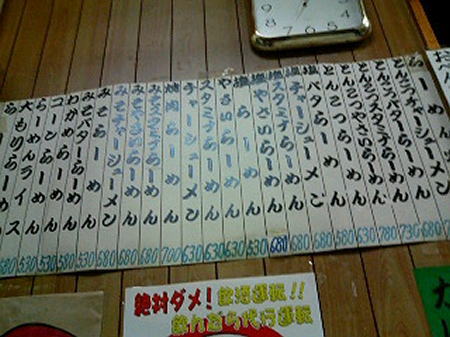 らーめん
チャーシューメン
とんこつバターらーめん
とんこつスタミナらーめん
とんこつやさいらーめん
とんこつらーめん
塩バターらーめん
塩チャーシューメン
塩スタミナらーめん
塩やさいらーめん
塩らーめん
やさいらーめん
スタミナらーめん
チャーシューメン
焼肉らーめん
みそスタミナらーめん
みそやさいらーめん
みそチャーシューメン
みそらーめん
みそバターらーめん
わかめらーめん
コーンらーめん
らーめんライス
大もりらーめん
680 730 780 630 580 580 680 680 680 530 630 630 630 700 680 680 580 530 580 580 530 530 680
絶対ダメ！飲酒運転!!
飲んだら代行運転